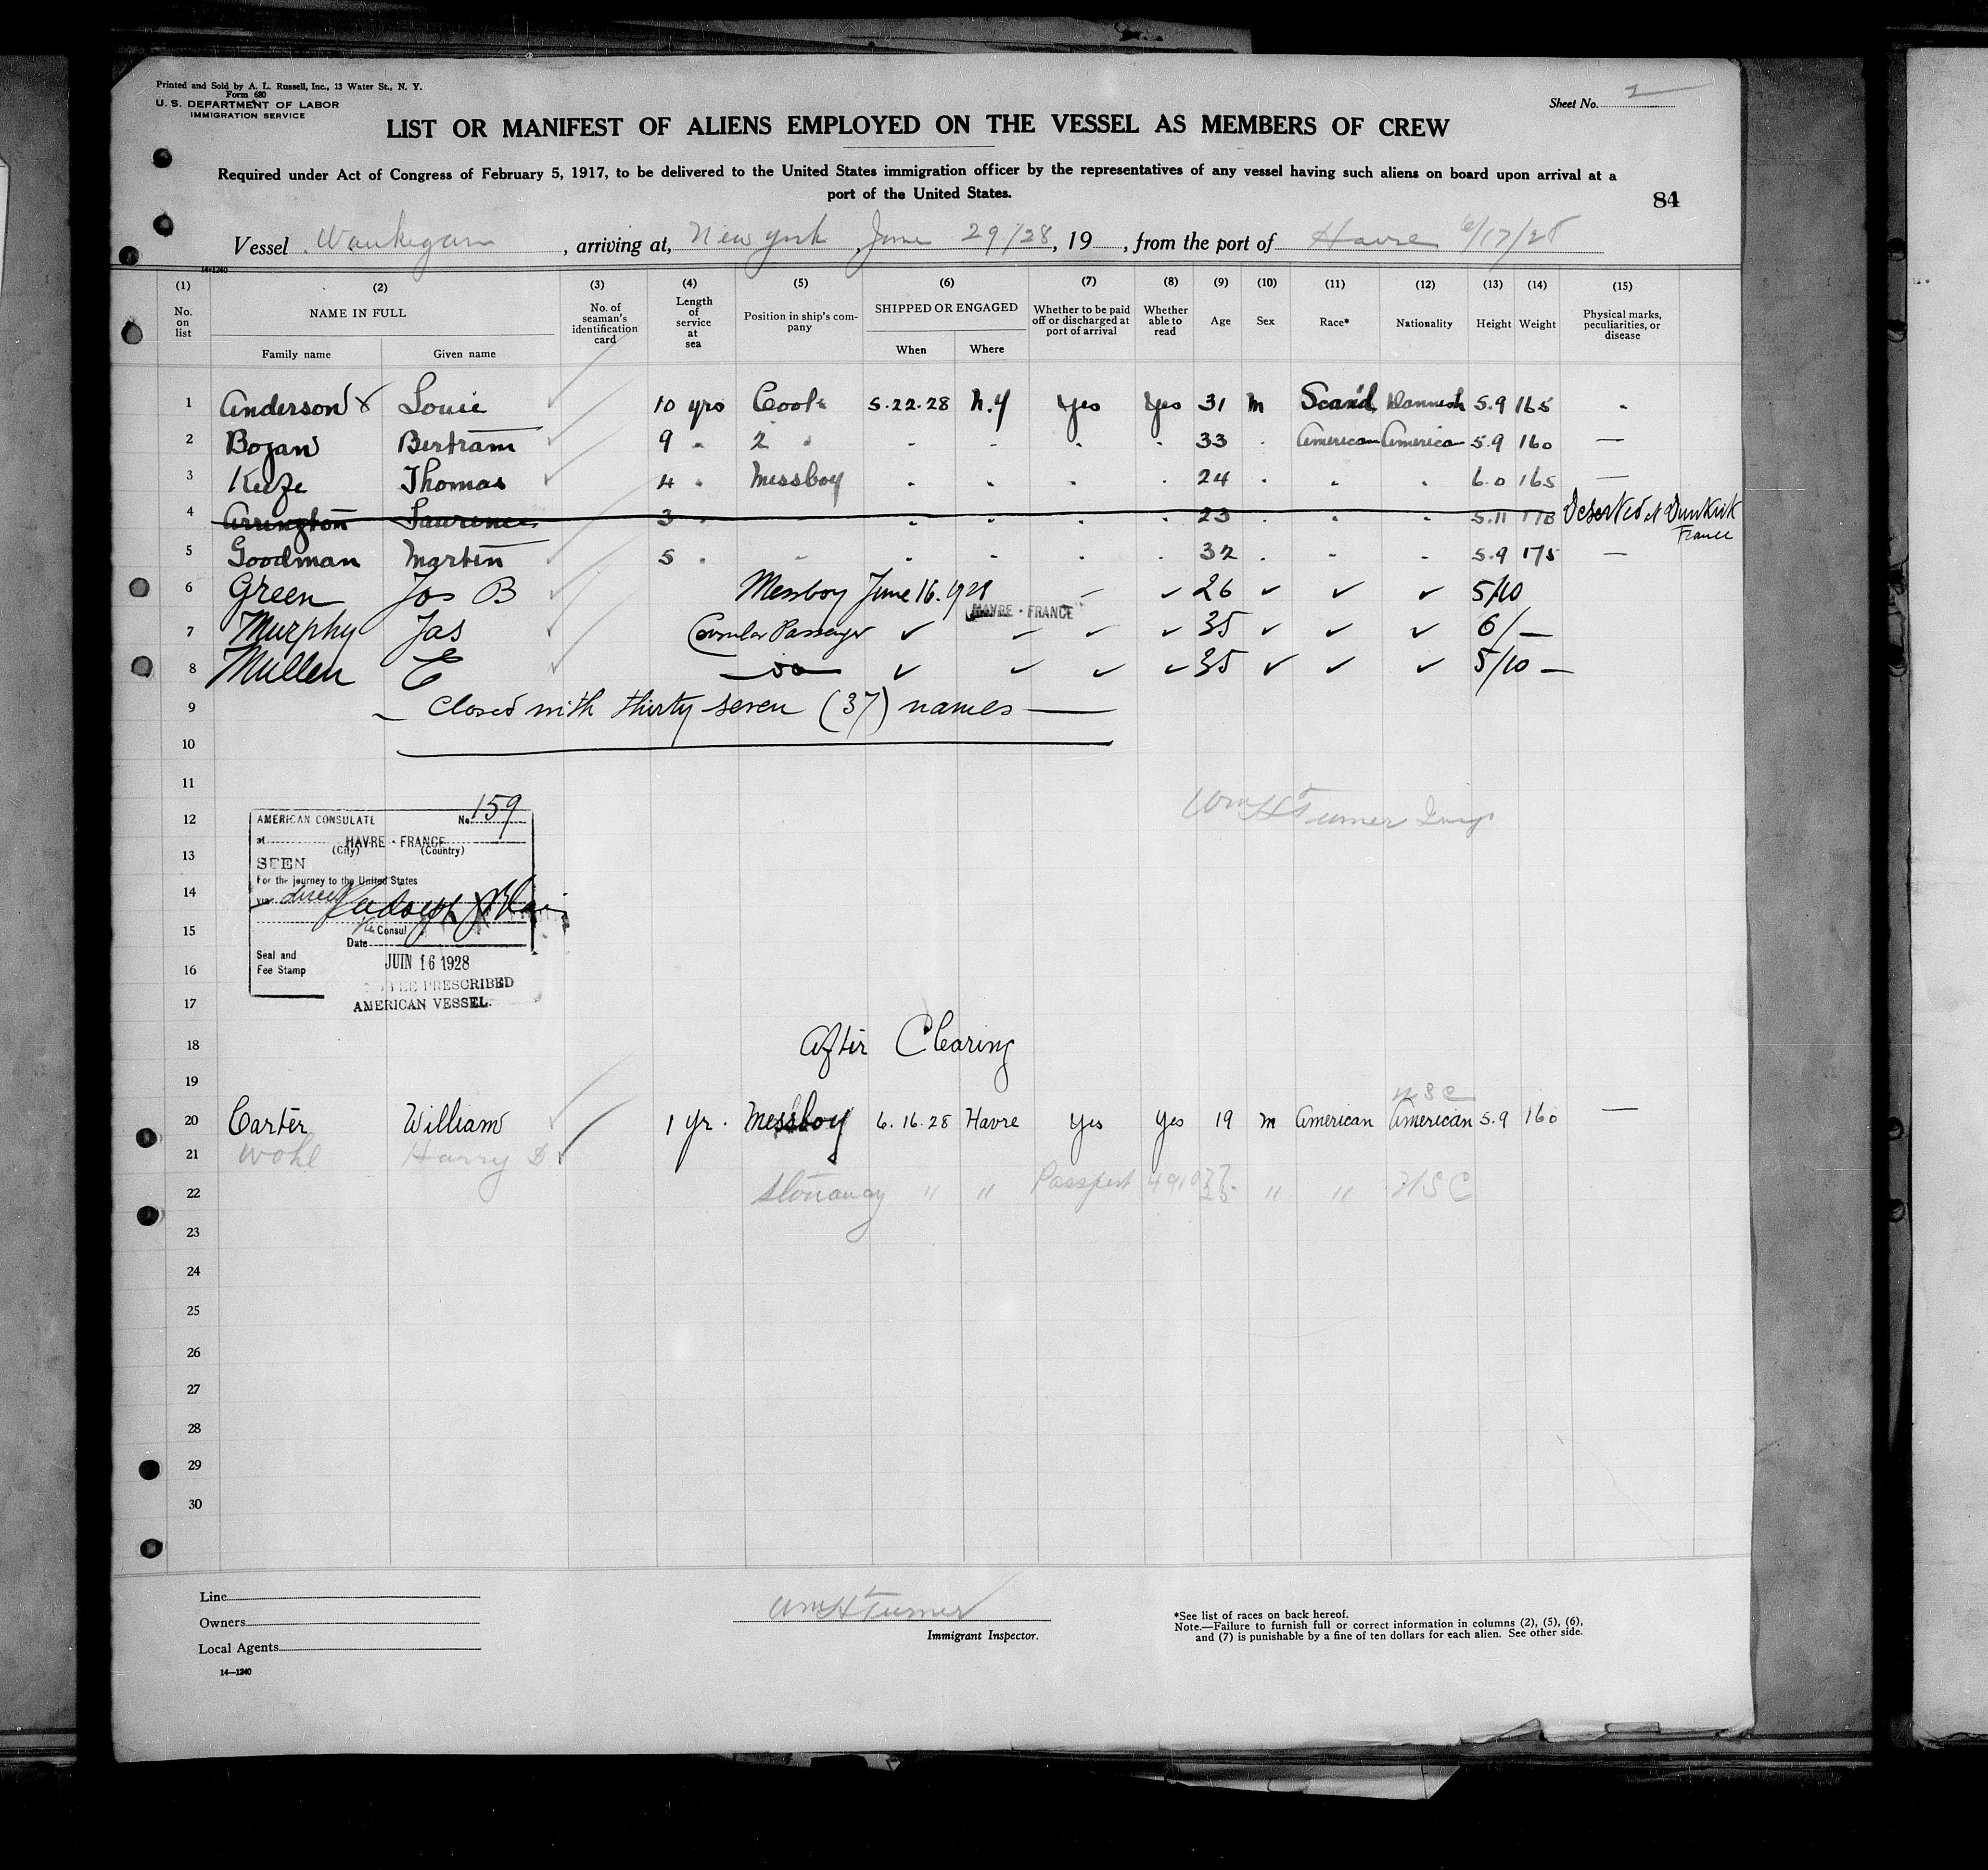 Printed and Sold by A. L. Russell, Inc., 13 Water St., N. Y.
Form 680
U. S. DEPARTMENT OF LABOR
IMMIGRATION SERVICE
Sheet No. 2
LIST OR MANIFEST OF ALIENS EMPLOYED ON THE VESSEL AS MEMBERS OF CREW
Required under Act of Congress of February 5, 1917, to be delivered to the United States immigration officer by the representatives of any vessel having such aliens on board upon arrival at a
port of the United States.
84
Vessel Waukegan, arriving at, New York June 29/28, 19, from the port of Havre 6/17/28
14-1240
(1) (2) (3) (4) (5) (6) (7) (8) (9) (10) (11) (12) (13) (14) (15)
No. on list NAME IN FULL No. of seaman's identification card Length of service at sea Position in ship's company SHIPPED OR ENGAGED Whether to be paid off or discharged at port of arrival Whether able to read Age Sex Race* Nationality Height Weight Physical marks, peculiarities, or disease
Family name Given name When Where
1 Anderson x Louie 10 yrs Cook 5.22.28 N.Y Yes Yes 31 m Scand. Dannish 5.9 165 -
2 Bojan Bertram 9 " 2 " - - - - 33 . American America 5.9 160 —
3 Keefe Thomas 4 " Messboy - - - - 24 . . . 6.0 165 —
4 Arrington Laurence 3 " - - - - 23 . . . 5.11 178 Deserted at Dunkirk
France
5 Goodman Martin 5 " - - - - - 32 . - - 5.9 175 —
6 Green Jos B Messboy June 16. 1928 - ✓ 26 ✓ ✓ ✓ 5/10
HAVRE - FRANCE
7 Murphy Jas Consular Passenger ✓ ✓ ✓ ✓ 35 ✓ ✓ ✓ 6/ —
8 Mullen E — do — ✓ ✓ ✓ ✓ 35 ✓ ✓ ✓ 5/10 —
9 — Closed with thirty seven (37) names —
10
11
12 Wm H Turner Insp
13
14
15
16
17
AMERICAN CONSULATE No. 159
at HAVRE - FRANCE
(City) (Country)
SEEN
For the journey to the United States
via direct
Vice Consul
Date
Seal and
Fee Stamp
JUIN 16 1928
FEE PRESCRIBED
AMERICAN VESSEL.
18 After Clearing
19
USC
20 Carter William 1 yr. Messboy 6.16.28 Havre Yes Yes 19 m American American 5.9 160 —
21 Wohl Harry D
22 Stowaway " " Passport 25 " " USC
23
24
25
26
27
28
29
30
Line
Owners
Local Agents
14—1240
Wm H Turner
Immigrant Inspector.
*See list of races on back hereof.
Note.—Failure to furnish full or correct information in columns (2), (5), (6),
and (7) is punishable by a fine of ten dollars for each alien. See other side.